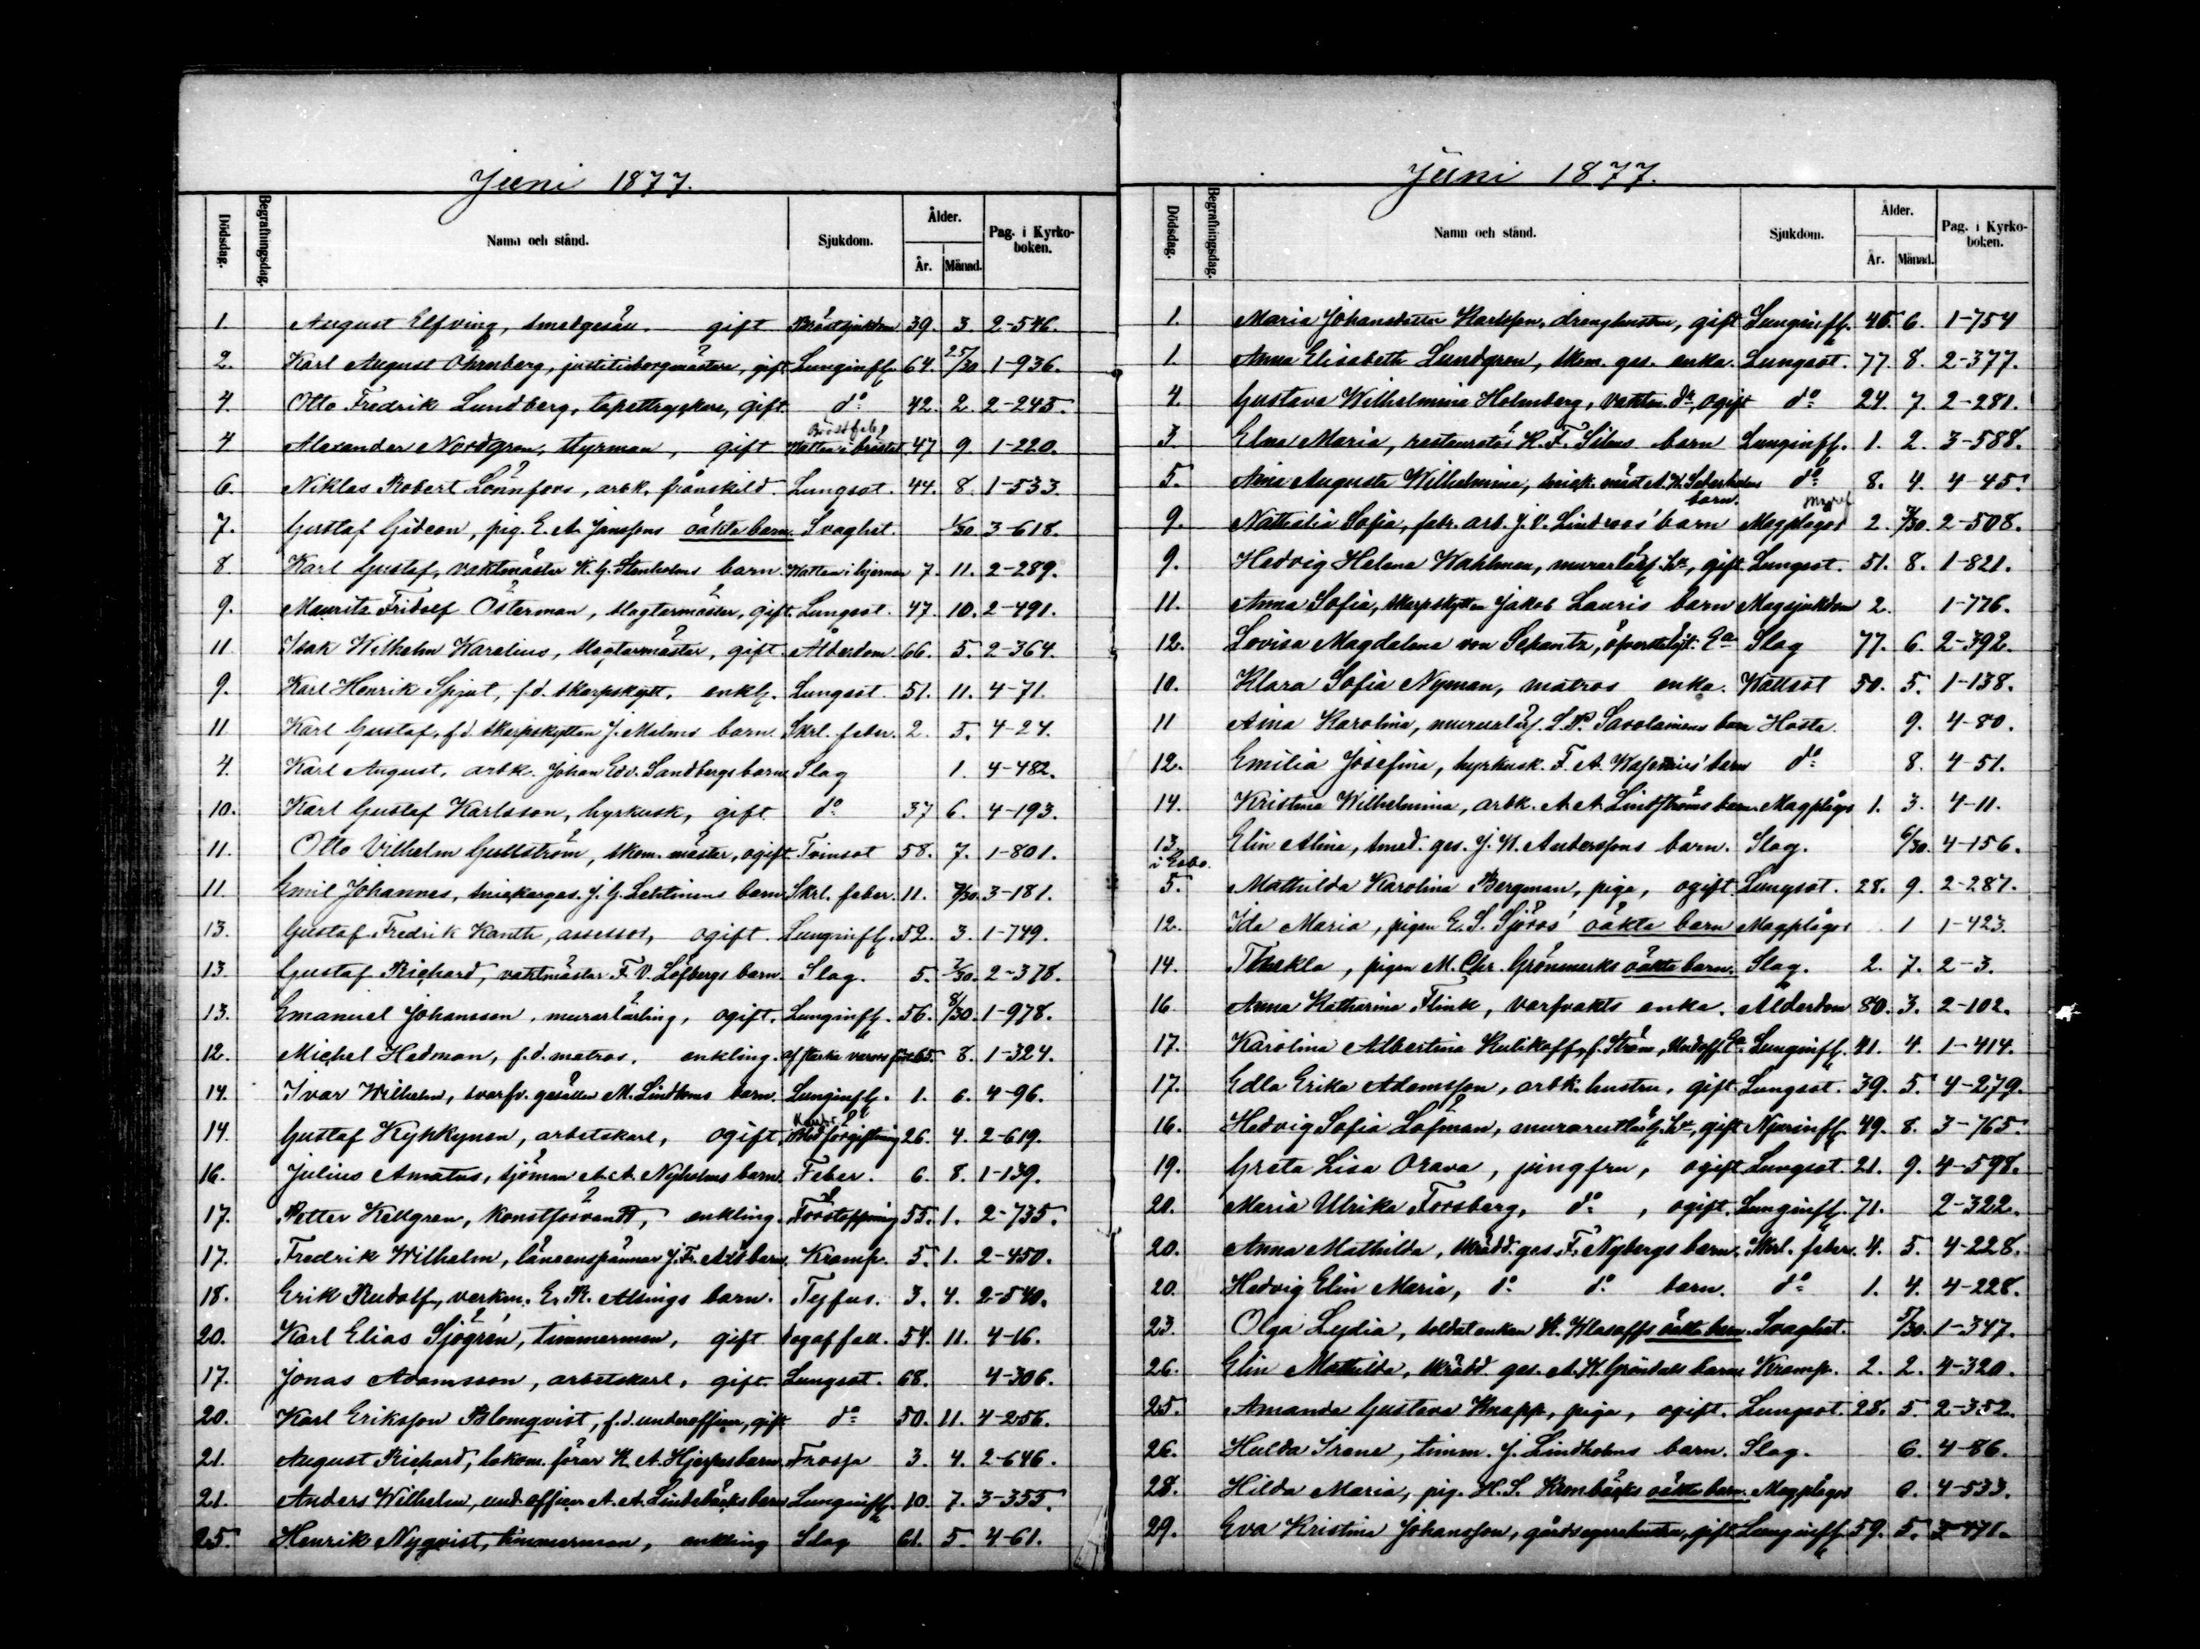 Juni 1877.
Dödsdag. Begrafningsdag. Namn och stånd. Sjukdom. Ålder. År. Månad. Pag. i Kyrko-boken.
1. August Elfving, smedgesäll. gift Bröstsjukdom 39. 3. 2-546.
2. Karl August Öhrnberg, justitieborgmästare, gift. Lunginfl. 64. 25/30 1-936.
4. Otto Fredrik Lundberg, tapettryckare, gift. do 42. 2. 2-245.
4. Alexander Nordgren, styrman, gift Vatten i bröstet 47. 9. 1-220.
6. Niklas Robert Lönnfors, arbk. frånskild. Lungsot. 44. 8. 1-533.
7. Gustaf Gideon, pig. E. A. Janssons oäkta barn. Svaghet. 1/30. 3-618.
8. Karl Gustaf, vaktmäster K. G. Stenholms barn. Vatten i hjernan 7. 11. 2-289.
9. Mauritz Fridolf Österman, slagtarmäster, gift. Lungsot. 47. 10. 2-491.
11. Isak Wilhelm Karelius, slagtarmäster, gift. Ålderdom 66. 5. 2-364.
9. Karl Henrik Spjut, f.d. skarpskytt, enkl. Lungsot. 51. 11. 4-71.
11. Karl Gustaf, f.d. skarpskytten J. Malms barn. Skrl. feber. 2. 5. 4-24.
4. Karl August, arbk. Johan Edv. Sandbergs barn Slag 1. 4-482.
10. Karl Gustaf Karlsson, hyrkusk, gift do 37 6. 4-193.
11. Otto Vilhelm Gullström, skom. mäster, ogift. Tvinsot 58. 7. 1-801.
11. Emil Johannes, snickarges. J. G. Lehtinens barn Skrl. feber. 11. 3-181.
13. Gustaf Fredrik Kanth, assessor, ogift. Lunginfl. 52. 3. 1-749.
13. Gustaf Richard, vaktmäster F. V. Löfbergs barn. Slag. 5. 2/30. 2-378.
13. Emanuel Johansson, murarlärling, ogift. Lunginfl. 56. 8/30. 1-978.
12. Michel Hedman, f.d. matros, enkling. af starka varors 65. 8. 1-324.
14. Ivar Wilhelm, svarfv. gesällen M. Lindboms barn. Lunginfl. 1. 6. 4-96.
14. Gustaf Kyhkynen, arbetskarl, ogift Blodförgiftning 26. 4. 2-619.
16. Julius Amatus, sjöman A. A. Nyholms barn. Feber. 6. 8. 1-139.
17. Petter Kellgren, konstförvandt, enkling. Förstoppning 55. 1. 2-735.
17. Fredrik Wilhelm, länsenspännar J. Fr. barn. Kramp. 5. 1. 2-450.
18. Erik Rudolf, verkm. E. R. Allings barn. Tyfus. 3. 4. 2-540.
20. Karl Elias Sjögrén, timmerman, gift 54. 11. 4-16.
17. Jonas Adamsson, arbetskarl, gift. Lungsot. 68. 4-306.
20. Karl Eriksson Blomqvist, f.d. underofficer, gift do 50. 11. 4-256.
21. August Richard, lokom. förar K. A. Hjerpes barn Frossa 3. 4. 2-646.
21. Anders Wilhelm, und. officer A. A. Lindebäcks barn Lunginfl. 10. 7. 3-355.
25. Henrik Nyqvist, timmerman, enkling Slag 61. 5. 4-61.
Juni 1877.
Dödsdag. Begrafningsdag. Namn och stånd. Sjukdom. Ålder. År. Månad. Pag. i Kyrko-boken.
1. Maria Johansdotter Karlsson, drenghustru, gift Lunginfl. 46. 6. 1-754
1. Anna Elisabeth Lundgren, skom. ges. enka. Lungsot. 77. 8. 2-377.
4. Gustava Wilhelmina Holmberg, vaktm. dr, ogift do 24. 7. 2-281.
3. Elna Maria, restauratör K. F. Siléns barn Lunginfl. 1. 2. 3-588.
5. Aina Augusta Wilhelmina, snick. mäst A. W. Sederholms barn. do 8. 4. 4-45.
9. Nathalia Sofia, fabr. arb. J. V. Lindroos' barn Magplågor 2. 2-508.
9. Hedvig Helena Wahlman, murarlärl. hu, gift. Lungsot. 51. 8. 1-821.
11. Anna Sofia, skarpskytten Jakob Lauris barn Magsjukdom 2. 1-776.
12. Lovisa Magdalena von Schantz, öfverstelöjt. Ea Slag 77. 6. 2-392.
10. Klara Sofia Nyman, matros enka. Vattsot 50. 5. 1-138.
11 Aina Karolina, murarlärl. Savolainens barn Hosta. 9. 4-80.
12. Emilia Josefina, hyrkusk. F. A. Wasenius' barn do 8. 4-51.
14. Kristina Wilhelmina, arbk. A. A. Lindströms barn Magplågor 1. 3. 4-11.
13. i Esbo. Elin Alina, smed. ges. J. W. Anderssons barn. Slag. 6/30. 4-156.
5. Mathilda Karolina Bergman, piga, ogift. Lungsot. 28. 9. 2-287.
12. Ida Maria, pigan E. S. Sjöros' oäkta barn Magplågor 1 1-423.
14. Thekla, pigan M. Chr. Grönmarks oäkta barn. Slag. 2. 7. 2-3.
16 Anna Katharina Flink, varfvakts enka. Ålderdom 80. 3. 2-102.
17. Karolina Albertina Kulikoff, f. Ström, Undoff. Ea. Lunginfl. 41. 4. 1-414.
17. Edla Erika Adamsson, arbk. hustru, gift Lungsot. 39. 5 4-279.
16. Hedvig Sofia Löfman, murarlärl. hu, gift Njurinfl. 49. 8. 3-765.
19. Greta Lisa Orava, jungfru, ogift Lungsot 21. 9. 4-598.
20. Maria Ulrika Forsberg, do, ogift. Lunginfl. 71. 2-322.
20. Anna Mathilda, skrädd. ges. F. Nybergs barn. Skrl. feber. 4. 5. 4-228.
20. Hedvig Elin Maria, do do barn. do 1. 4. 4-228.
23. Olga Lydia, soldatenkan K. Wlasoffs oäkta barn. Svaghet. 5/30. 1-347.
26. Elin Mathilda, skrädd. ges. A. K. Gröndals barn Kramp. 2. 2. 4-320.
25. Amanda Gustava Knapp, piga, ogift. Lungsot. 28. 5. 2-352.
26. Hulda Irene, timm. J. Lindholms barn. Slag. 6. 4-86.
28. Hilda Maria, pig. H. S. oäkta barn. Magplågor 4-533.
29. Eva Kristina Johansson, gårdsegarehustru, gift Lunginfl. 59. 5.